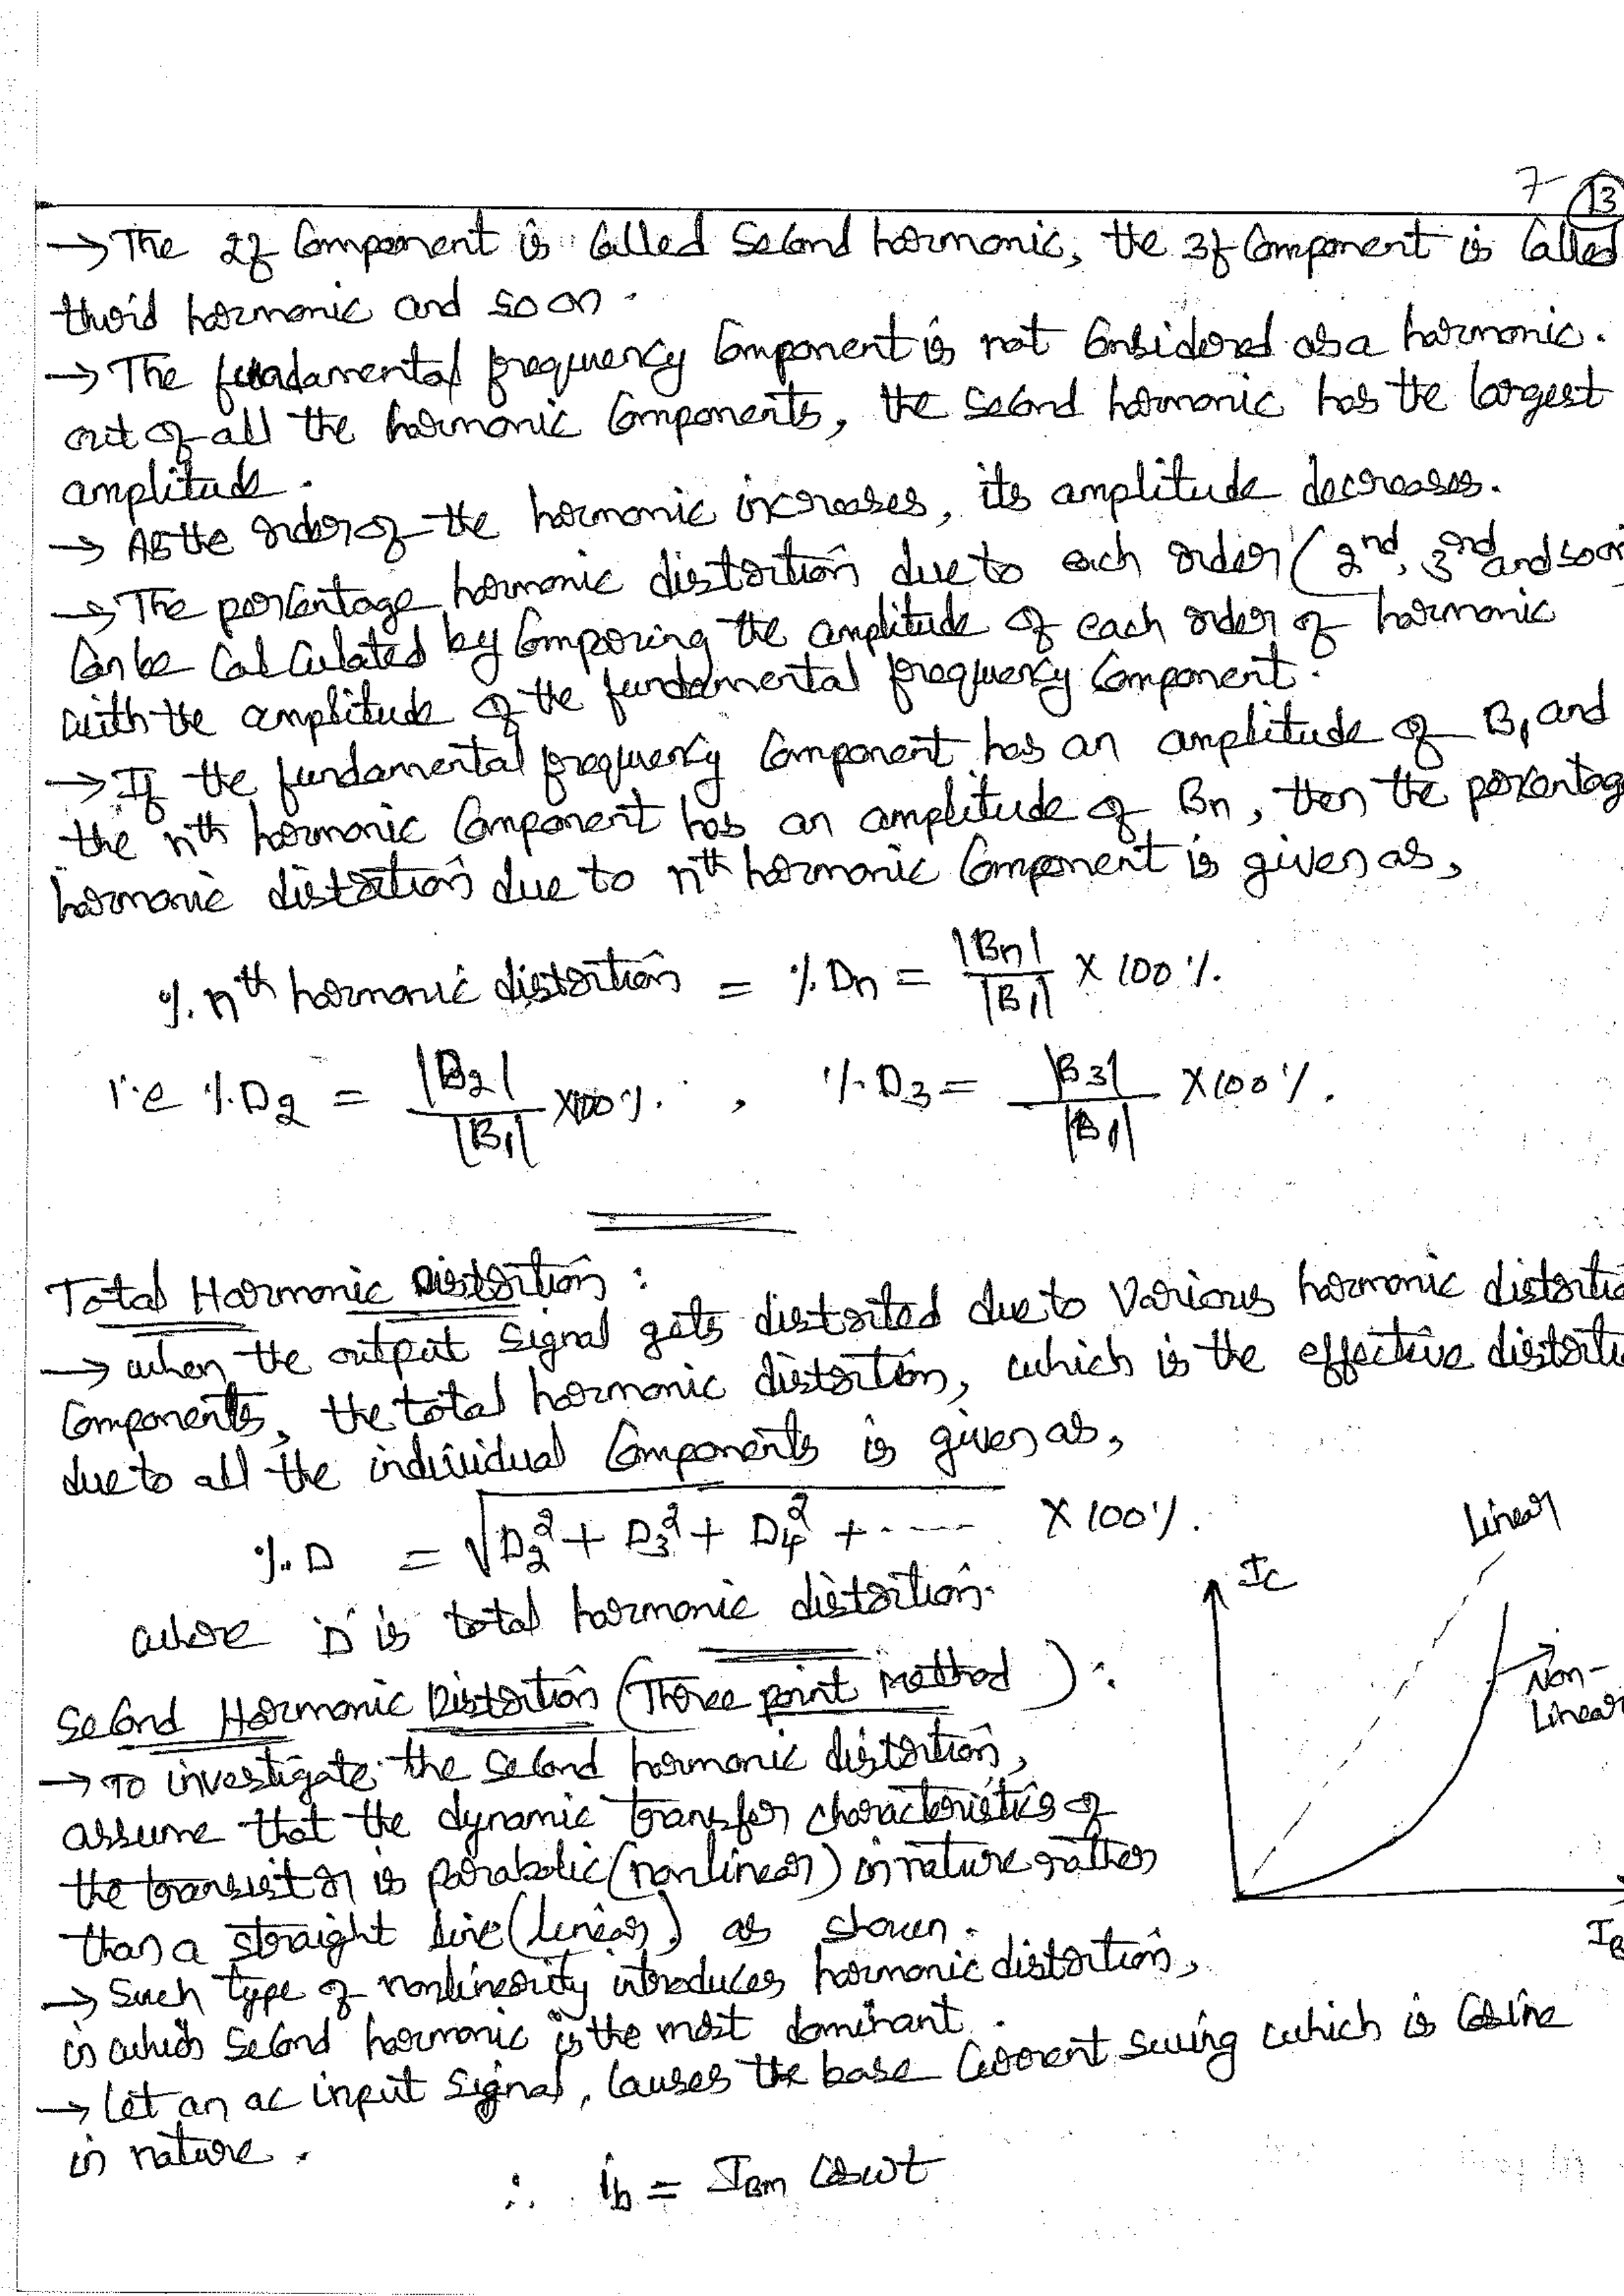 7 13
→ The 2f Component is Called Second harmonic, the 3f Component is Called
third harmonic and so on.
→ The fundamental frequency Component is not Considered as a harmonic.
out of all the harmonic Components, the Second harmonic has the largest
amplitude.
→ As the order of the harmonic increases, its amplitude decreases.
→ The percentage harmonic distortion due to each order (2nd, 3rd and soon
Can be Calculated by Comparing the amplitude of each order of harmonic
with the amplitude of the fundamental frequency Component.
→ If the fundamental frequency Component has an amplitude of B1 and
the nth harmonic Component has an amplitude of Bn, then the percentag
harmonic distortion due to nth harmonic Component is given as,
%. nth harmonic distortion = %. Dn = |Bn| / |B1| X 100 %.
i.e %. D2 = |B2| / |B1| X100 %. , %. D3 = |B3| / |B1| X100 %.
Total Harmonic Distortion :
→ when the output signal gets distorted due to Various harmonic distortio
Components, the total harmonic distortion, which is the effective distorti
due to all the individual Components is given as,
%. D = √D2² + D3² + D4² + ---- X 100 %.
where D is total harmonic distortion.
Second Harmonic Distortion (Three point Method) :
→ To investigate the Second harmonic distortion,
assume that the dynamic transfer characteristics of
the transistor is parabolic (nonlinear) in nature rather
than a straight line (linear) as shown.
Linear
IC
Non-
Linear
IB
→ Such type of nonlinearity introduces harmonic distortion,
in which Second harmonic is the most dominant.
→ Let an ac input signal, Causes the base Current swing which is Cosine
in nature.
∴ ib = IBm Cos wt